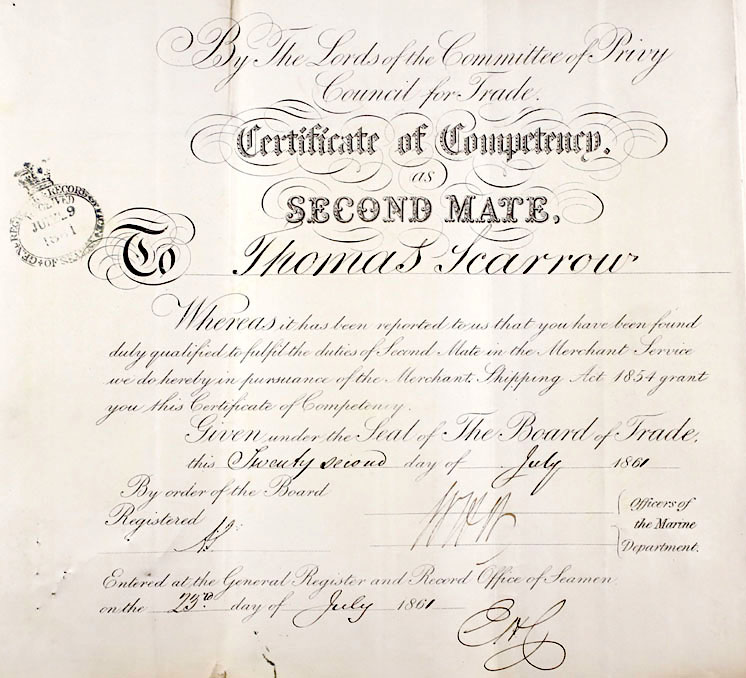 By The Lords of the Committee of Privy
Council for Trade.
Certificate of Competency.
as
SECOND MATE,
To Thomas Scarrow
Whereas it has been reported to us that you have been found
duly qualified to fulfil the duties of Second Mate in the Merchant Service
we do hereby in pursuance of the Merchant Shipping Act 1854 grant
you this Certificate of Competency.
Given under the Seal of The Board of Trade,
this Twenty second day of July 1861
By order of the Board
Registered
Officers of
the Marine
Department.
Entered at the General Register and Record Office of Seamen
on the 23rd day of July 1861